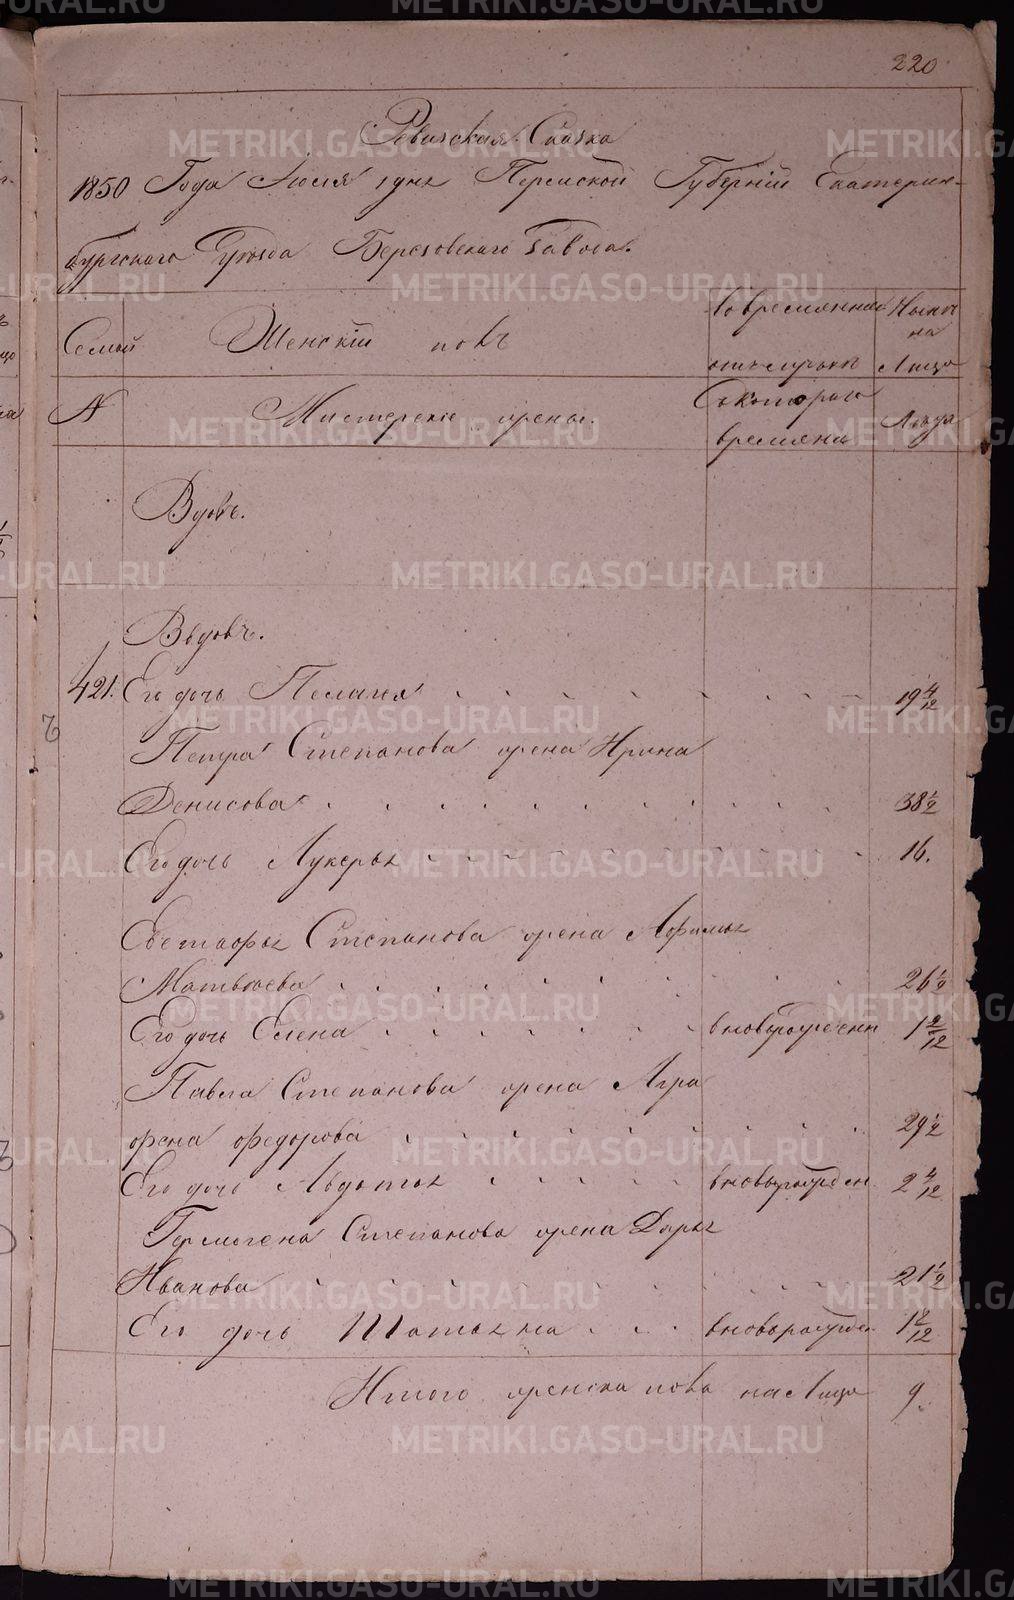 220
Ревизская Сказка
1850 Года Июля 1 дня Пермской Губернии Екатерин-
бургскаго Уезда Березовскаго Завода.
Семьи Женскій полъ во временной Ныне
на
отлучки Лицо
N Мастерские жены. Съ котораго
времяна Лета
Вдовъ.
Вдовъ.
421. Его дочь Пелагея 19 4/12
Петра Степанова жена Ирина
Денисова 38 1/2
Его дочь Лукерья 16.
Степанова жена Афимья
Матвеева 26 1/2
Его дочь Елена вновьрожденн 1 2/12
Павла Степанова жена Агра
фена Федорова 29 1/2
Его дочь Авдотья вновьрожден 2 4/12
Гермогена Степанова жена Дарья
Иванова 21 1/2
Его дочь Татьяна вновьрожден 1 2/12
Итого женска пола на Лицо 9.
METRIKI.GASO-URAL.RU